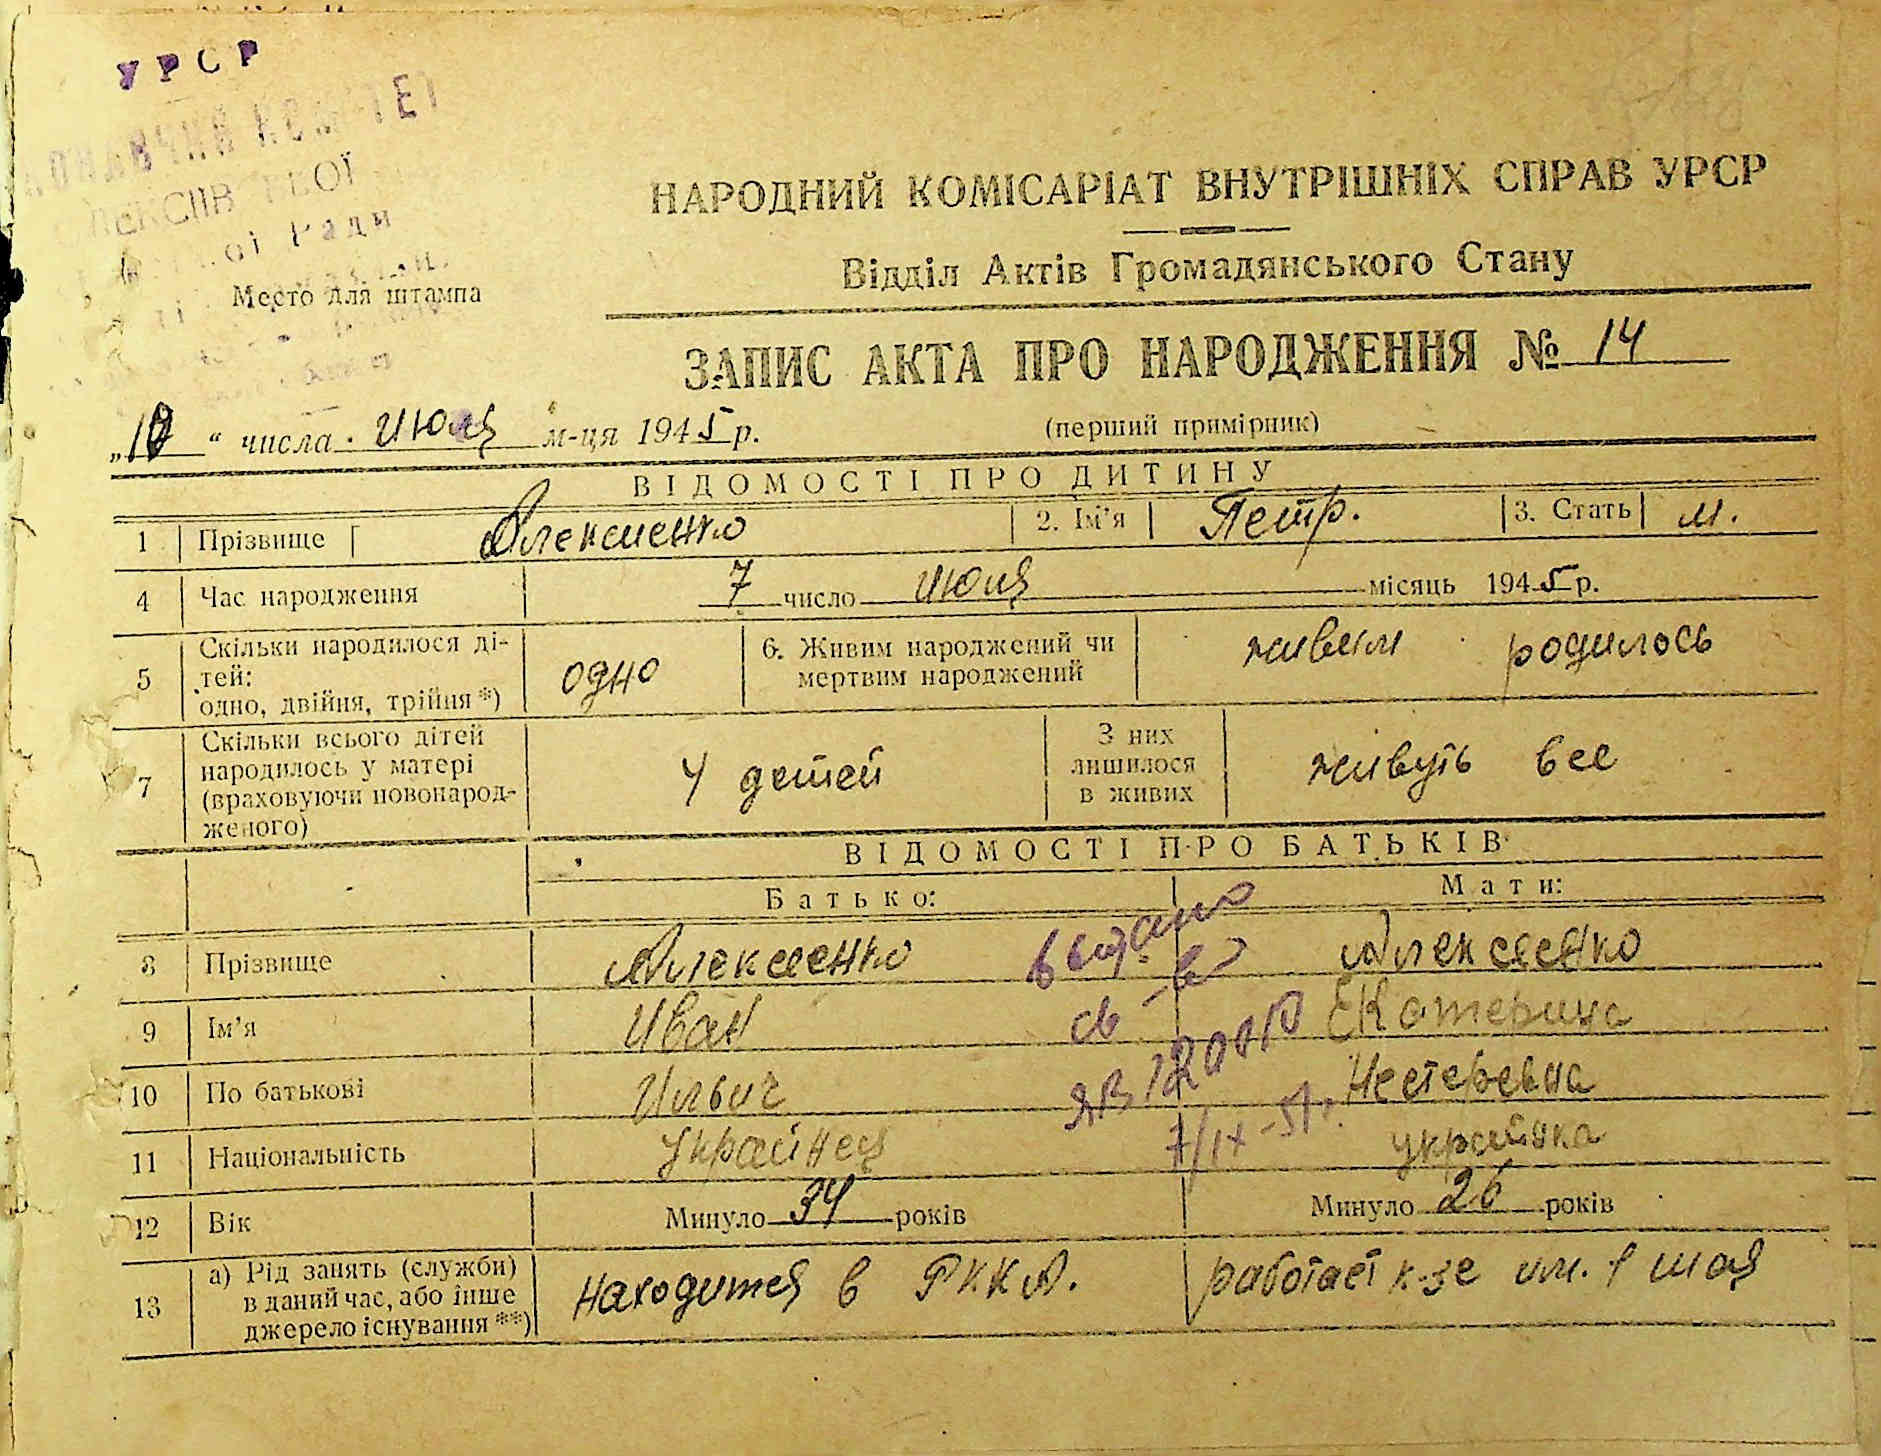 УРСР
КОМІТЕТ
Ради
Место для штампа
НАРОДНИЙ КОМІСАРІАТ ВНУТРІШНІХ СПРАВ УРСР
Відділ Актів Громадянського Стану
ЗАПИС АКТА ПРО НАРОДЖЕННЯ № 14
„10“ числа июля м-ця 1945 р. (перший примірник)
ВІДОМОСТІ ПРО ДИТИНУ
1 Прізвище Алексиенко 2. Ім’я Петр. 3. Стать м.
4 Час народження 7 число июля місяць 1945 р.
5 Скільки народилося ді-
тей:
одно, двійня, трійня *) одно 6. Живим народжений чи
мертвим народжений живым родилось
7 Скільки всього дітей
народилось у матері
(враховуючи новонарод-
женого) 4 детей З них
лишилося
в живих живуть все
ВІДОМОСТІ ПРО БАТЬКІВ
Батько: Мати:
8 Прізвище Алексеенко Алексеенко
9 Ім’я Иван Екатерина
10 По батькові Ильич Нестеревна
11 Національність Украйнец украйнка
12 Вік Минуло 34 років Минуло 26 років
13 а) Рід занять (служби)
в даний час, або інше
джерело існування **) находится в РККА. работает к-зе им. 1 мая
выдано
св-во
7/IX-51г.